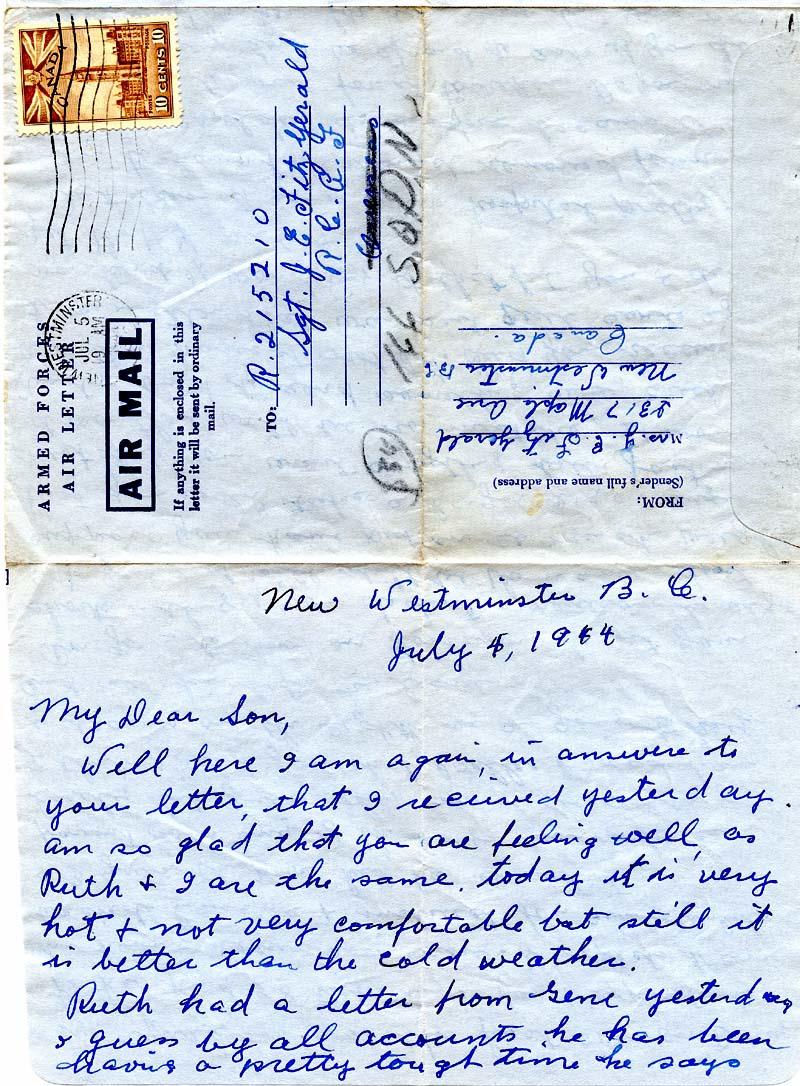 CANADA
POSTAGE POSTES
10 CENTS 10
WESTMINSTER
JUL 5
AM
ARMED FORCES
AIR LETTER
AIR MAIL
If anything is enclosed in this
letter it will be sent by ordinary
mail.
TO:
R. 215210
Sgt. J. E. Fitz Gerald
R. C. A. F
166 SQDN.
FROM:
(Sender's full name and address)
Mrs. J. E. Fitz Gerald
2317 Maple Ave
New Westminster B.C
Canada.
New Westminster B. C.
July 4, 1944
My Dear Son,
Well here I am again, in answere to
your letter, that I received yesterday.
am so glad that you are feeling well, as
Ruth & I are the same. today it is very
hot & not very comfortable but still it
is better than the cold weather.
Ruth had a letter from Gene yesterday
& guess by all accounts he has been
having a pretty tough time he says